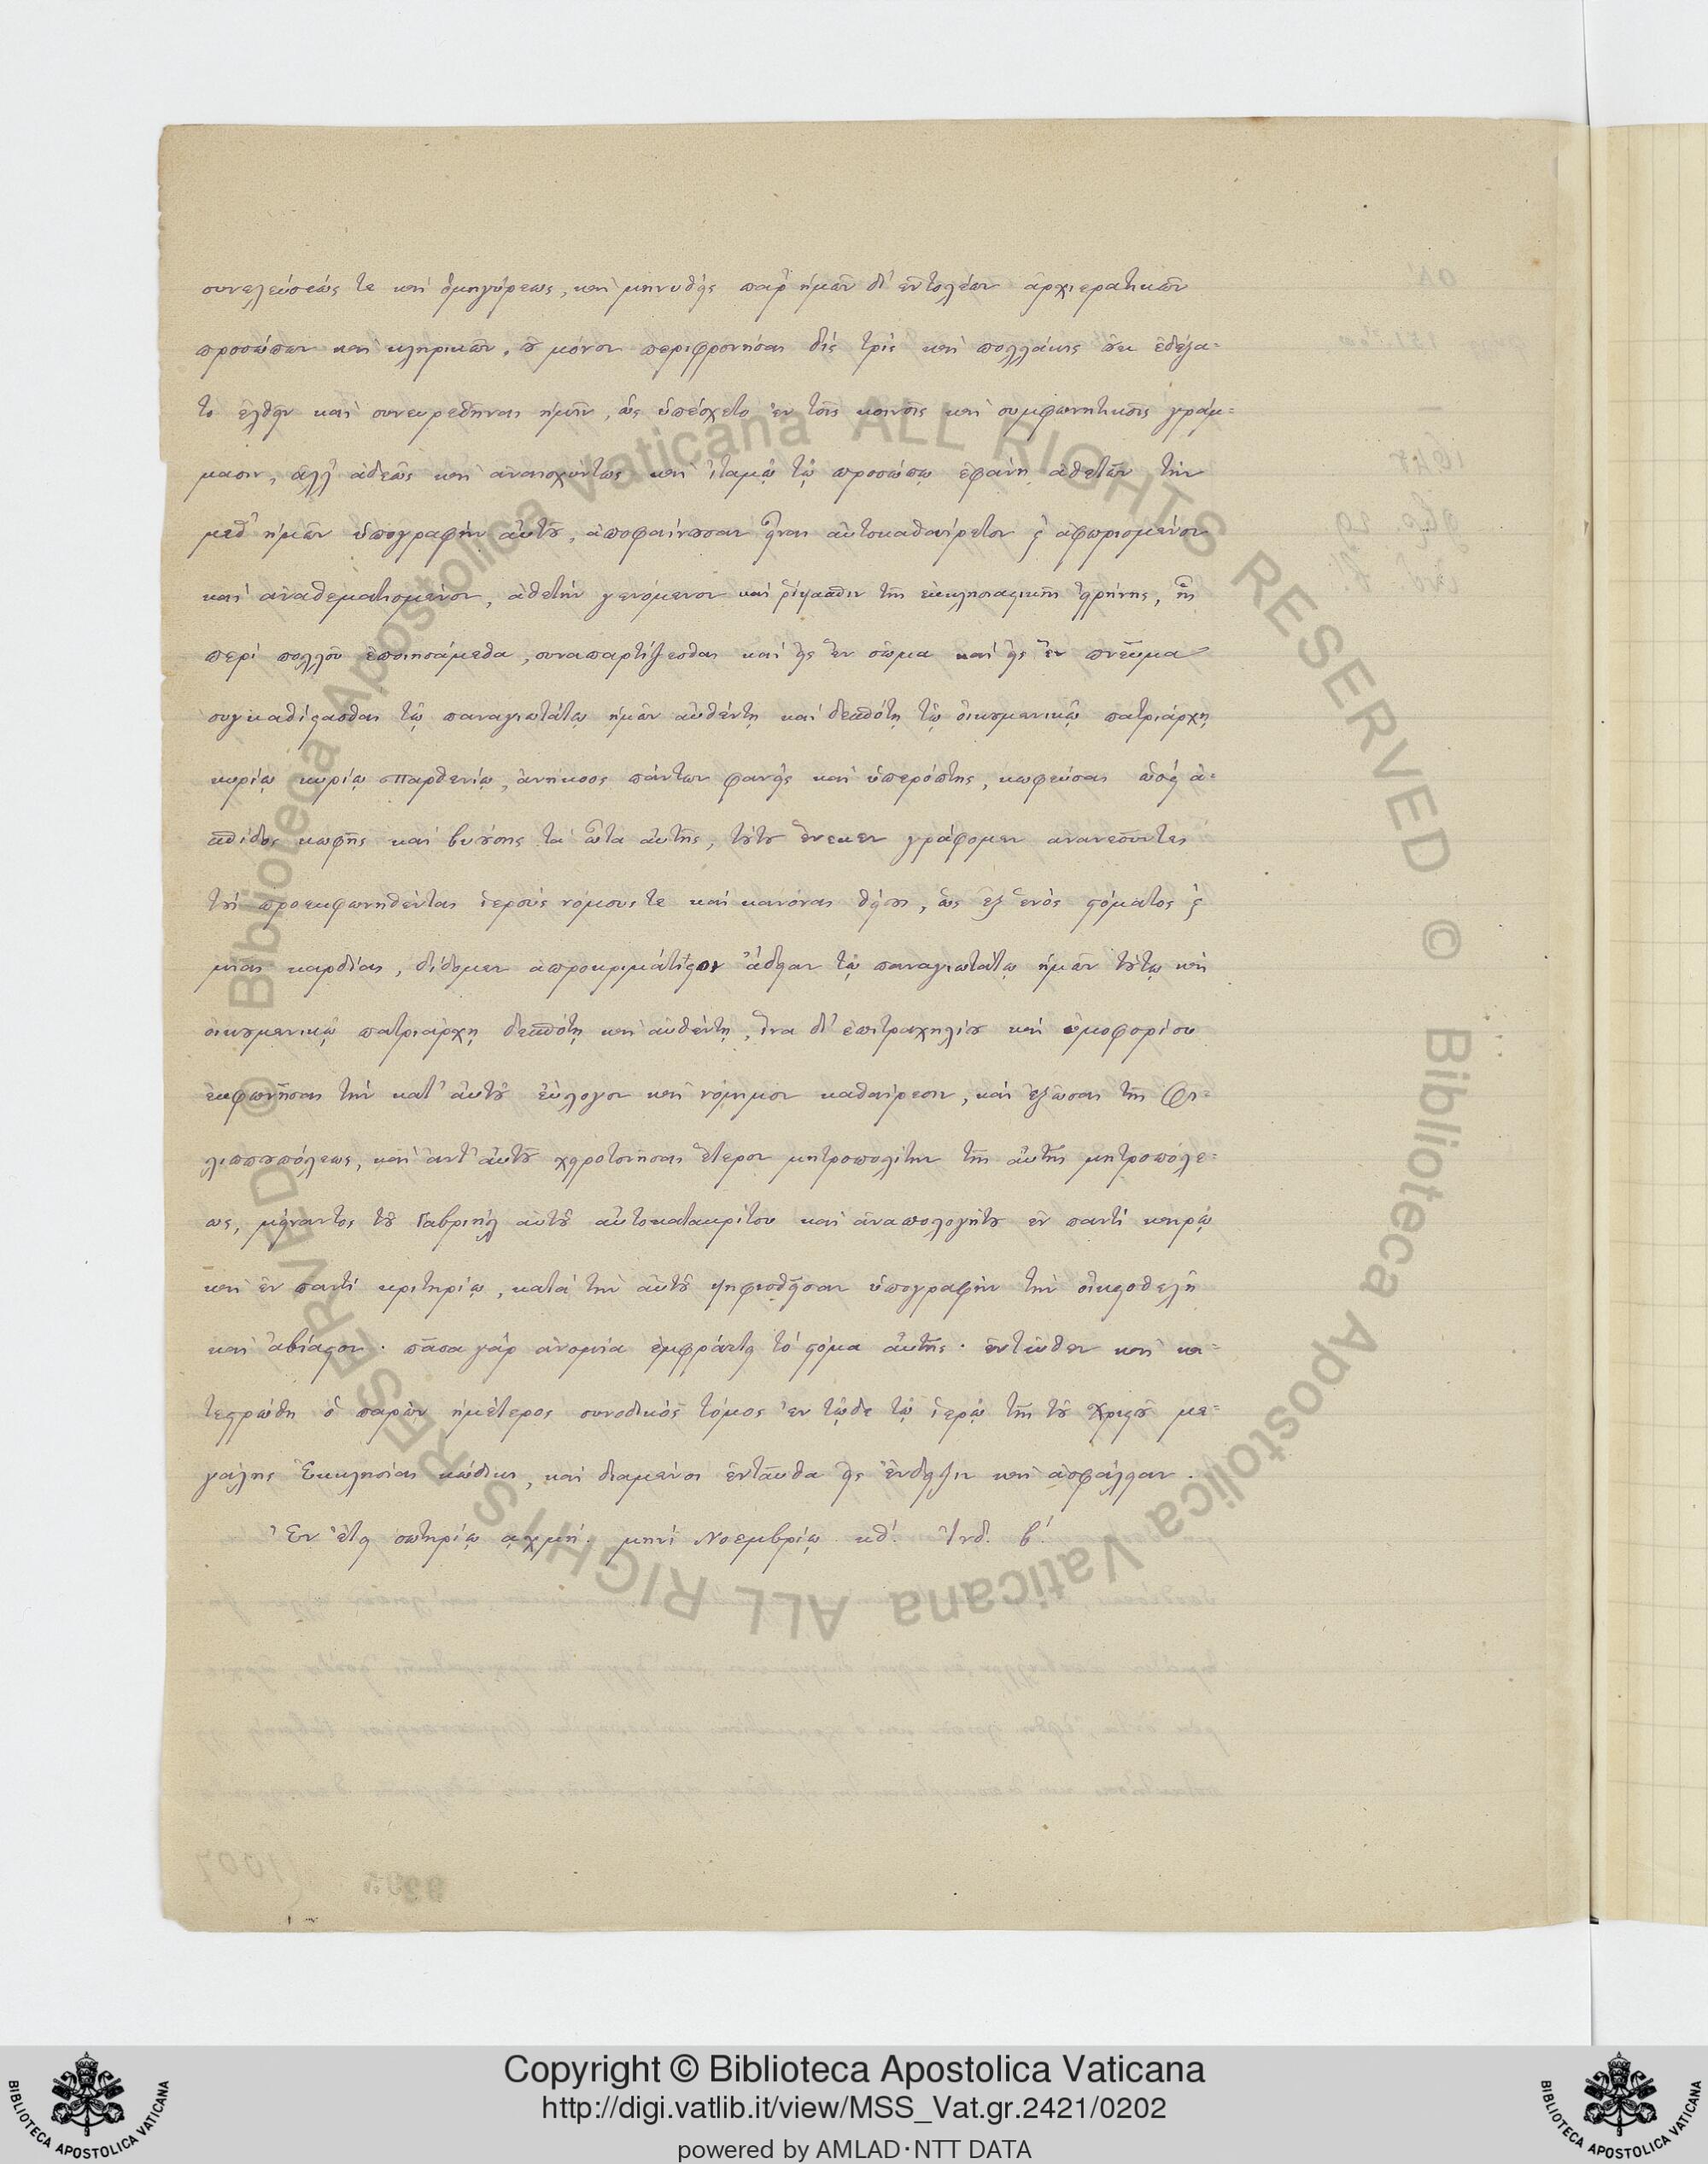 συνελεύσεώς τε καὶ ὁμηγύρεως, καὶ μηνυθεὶς παρ' ἡμῶν δι' ἐντολέων ἀρχιερατικῶν
προσώπων καὶ κληρικῶν, οὐ μόνον περιφρονήσας δὶς τρὶς καὶ πολλάκις οὐκ ἐδέξα-
το ἐλθεῖν καὶ συνευρεθῆναι ἡμῖν, ὡς ὑπέσχετο ἐν τοῖς κοινοῖς καὶ συμφωνητικοῖς γράμ-
μασιν, ἀλλ' ἀδεῶς καὶ ἀναισχύντως καὶ ἰταμῷ τῷ προσώπῳ ἐφάνη ἀθετῶν τὴν
μεθ' ἡμῶν ὑπογραφὴν αὐτοῦ, ἀποφαίνουσαν εἶναι αὐτοκαθαίρετον καὶ ἀφωρισμένον
καὶ ἀναθεματισμένον, ἀθετὴν γενόμενον καὶ ῥίψασπιν τῆς ἐκκλησιαστικῆς εἰρήνης, ἧς
περὶ πολλοῦ ἐποιησάμεθα, συναπαρτίζεσθαι καὶ εἰς ἓν σῶμα καὶ εἰς ἓν πνεῦμα
συγκαθίστασθαι τῷ παναγιωτάτῳ ἡμῶν αὐθέντῃ καὶ δεσπότῃ τῷ οἰκουμενικῷ πατριάρχῃ
κυρίῳ κυρίῳ Παρθενίῳ, ἀνήκοος πάντων φανεὶς καὶ ὑπερόπτης, κωφεύσας ὡσεὶ ἀ-
σπίδος κωφῆς καὶ βυούσης τὰ ὦτα αὐτῆς, τούτου ἕνεκεν γράφομεν ἀνανεοῦντες
τοὺς προεκφωνηθέντας ἱερούς νόμους τε καὶ κανόνας θείους, ὡς ἐξ ἑνὸς στόματος καὶ
μιᾶς καρδίας, δίδομεν ἀπροκριμάτιστον ἄδειαν τῷ παναγιωτάτῳ ἡμῶν τούτῳ καὶ
οἰκουμενικῷ πατριάρχῃ δεσπότῃ καὶ αὐθέντῃ, ἵνα δι' ἐπιτραχηλίου καὶ ὠμοφορίου
ἐκφωνῆσαι τὴν κατ' αὐτοῦ εὔλογον καὶ νόμιμον καθαίρεσιν, καὶ ἐξῶσαι τῆς Φι-
λιππουπόλεως, καὶ ἀντ' αὐτοῦ χειροτονῆσαι ἕτερον μητροπολίτην τῆς αὐτῆς μητροπόλε-
ως, μείναντος τοῦ Γαβριὴλ αὐτοῦ αὐτοκατακρίτου καὶ ἀναπολογήτου ἐν παντὶ καιρῷ
καὶ ἐν παντὶ κριτηρίῳ, κατὰ τὴν αὐτοῦ ψηφισθεῖσαν ὑπογραφὴν τὴν οἰκειοθελῆ
καὶ ἀβίαστον· πᾶσα γὰρ ἀνομία ἐμφράττει τὸ στόμα αὐτῆς· ἐντεῦθεν καὶ κα-
τεστρώθη ὁ παρὼν ἡμέτερος συνοδικὸς τόμος ἐν τῷδε τῷ ἱερῷ τῆς τοῦ Χριστοῦ με-
γάλης Ἐκκλησίας κώδικι, καὶ διαμένοι ἐνταῦθα εἰς ἔνδειξιν καὶ ἀσφάλειαν.
Ἐν ἔτει σωτηρίῳ αχμη΄. μηνὶ Νοεμβρίῳ κθ΄. Ἰνδ. β΄.
Copyright © Biblioteca Apostolica Vaticana
http://digi.vatlib.it/view/MSS_Vat.gr.2421/0202
powered by AMLAD·NTT DATA
© Biblioteca Apostolica Vaticana ALL RIGHTS RESERVED © Biblioteca Apostolica Vaticana ALL RIGHTS RESERVED
BIBLIOTECA APOSTOLICA VATICANA
BIBLIOTECA APOSTOLICA VATICANA